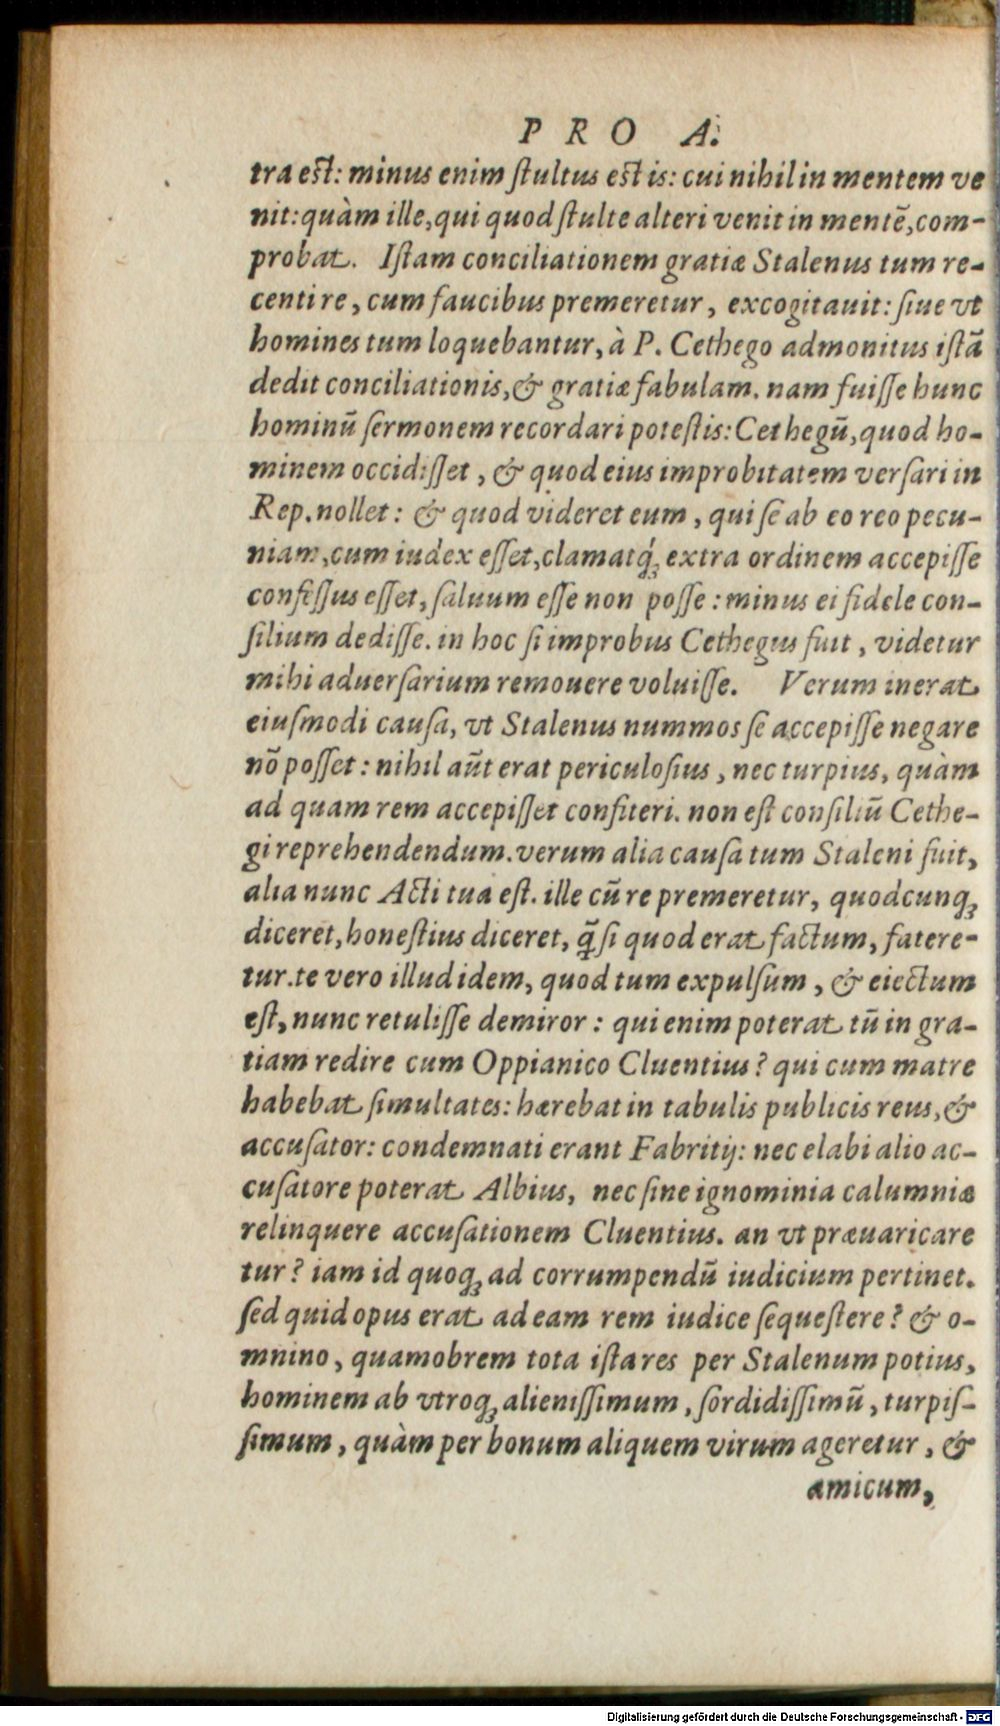 PRO A.
tra est: minus enim ſtultus est is: cui nihil in mentem ve
nit: quàm ille, qui quod ſtulte alteri venit in mentē, com-
probat. Iſtam conciliationem gratiæ Stalenus tum re-
centi re, cum faucibus premeretur, excogitauit: ſiue vt
homines tum loquebantur, à P. Cethego admonitus iſtā
dedit conciliationis, & gratiæ fabulam. nam fuiſſe hunc
hominū ſermonem recordari poteſtis: Cethegū, quod ho-
minem occidiſſet, & quod eius improbitatem verſari in
Rep. nollet: & quod videret eum, qui ſe ab eo reo pecu-
niam, cum iudex eſſet, clamatq́; extra ordinem accepiſſe
confeſſus eſſet, ſaluum eſſe non poſſe: minus ei fidele con-
ſilium dediſſe. in hoc ſi improbus Cethegus fuit, videtur
mihi aduerſarium remouere voluiſſe. Verum inerat
eiuſmodi cauſa, vt Stalenus nummos ſe accepiſſe negare
nō poſſet: nihil aūt erat periculoſius, nec turpius, quàm
ad quam rem accepiſſet confiteri. non eſt conſiliū Cethe-
gi reprehendendum. verum alia cauſa tum Staleni fuit,
alia nunc Acti tua eſt. ille cū re premeretur, quodcunq;
diceret, honeſtius diceret, q̄ ſi quod erat factum, fatere-
tur. te vero illud idem, quod tum expulſum, & eiectum
eſt, nunc retuliſſe demiror: qui enim poterat tū in gra-
tiam redire cum Oppianico Cluentius? qui cum matre
habebat ſimultates: hærebat in tabulis publicis reus, &
accuſator: condemnati erant Fabritij: nec elabi alio ac-
cuſatore poterat Albius, nec ſine ignominia calumniæ
relinquere accuſationem Cluentius. an vt præuaricare
tur? iam id quoq; ad corrumpendū iudicium pertinet.
ſed quid opus erat ad eam rem iudice ſequeſtere? & o-
mnino, quamobrem tota iſta res per Stalenum potius,
hominem ab vtroq; alieniſſimum, ſordidiſſimū, turpiſ-
ſimum, quàm per bonum aliquem virum ageretur, &
amicum,
Digitalisierung gefördert durch die Deutsche Forschungsgemeinschaft - DFG